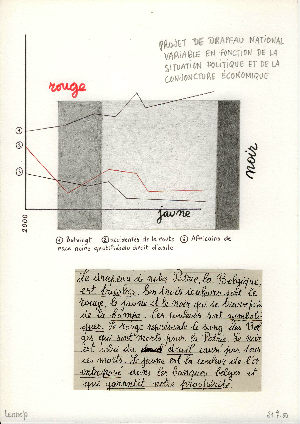 PROJET DE DRAPEAU NATIONAL
VARIABLE EN FONCTION DE LA
SITUATION POLITIQUE ET DE LA
CONJONCTURE ÉCONOMIQUE
rouge
noir
jaune
2000
① ② accidentés de la route ③ Africains de
race noire droit d'asile
Le drapeau de notre Patrie, la Belgique,
est tricolore. Ses trois couleurs sont le
rouge, le jaune et le noir qui se trouve près
de la hampe. Ces couleurs sont symboli-
ques. Le rouge représente le sang des Bel-
ges qui sont morts pour la Patrie. Le noir
est celui du deuil causé par tous
ces morts. Le jaune est la couleur de l'or
entreposé dans les banques belges et
qui garantit notre prospérité.